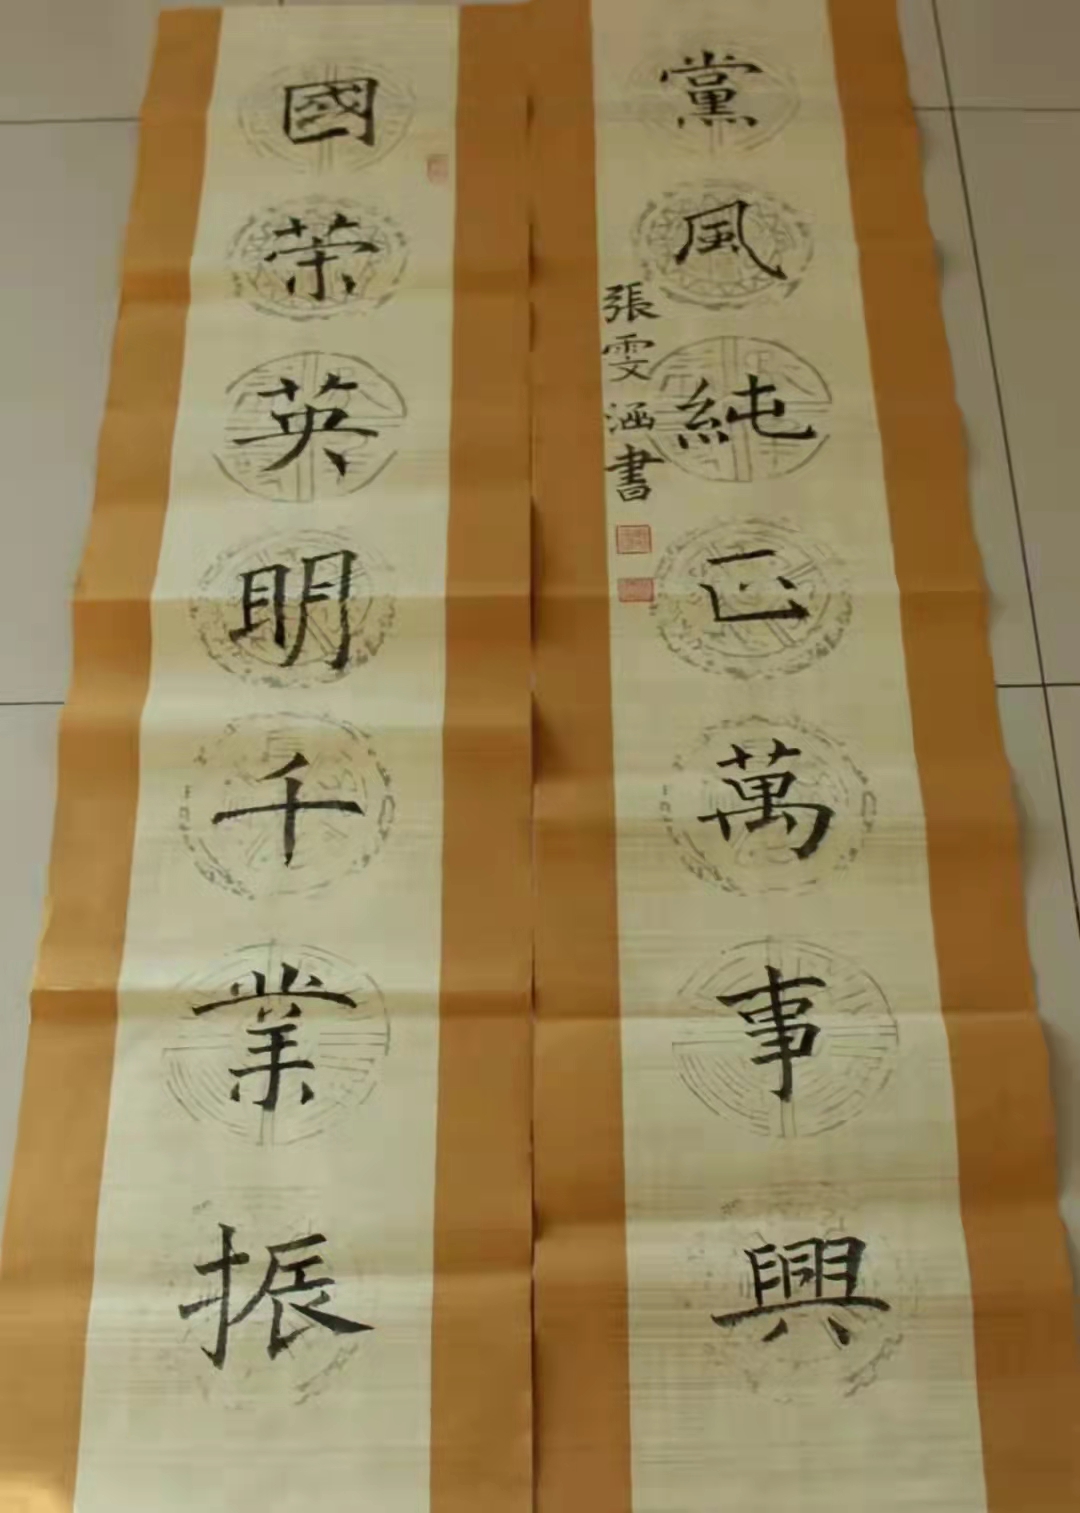 國荣英明千業振
黨風純正萬事興
張雯涵書